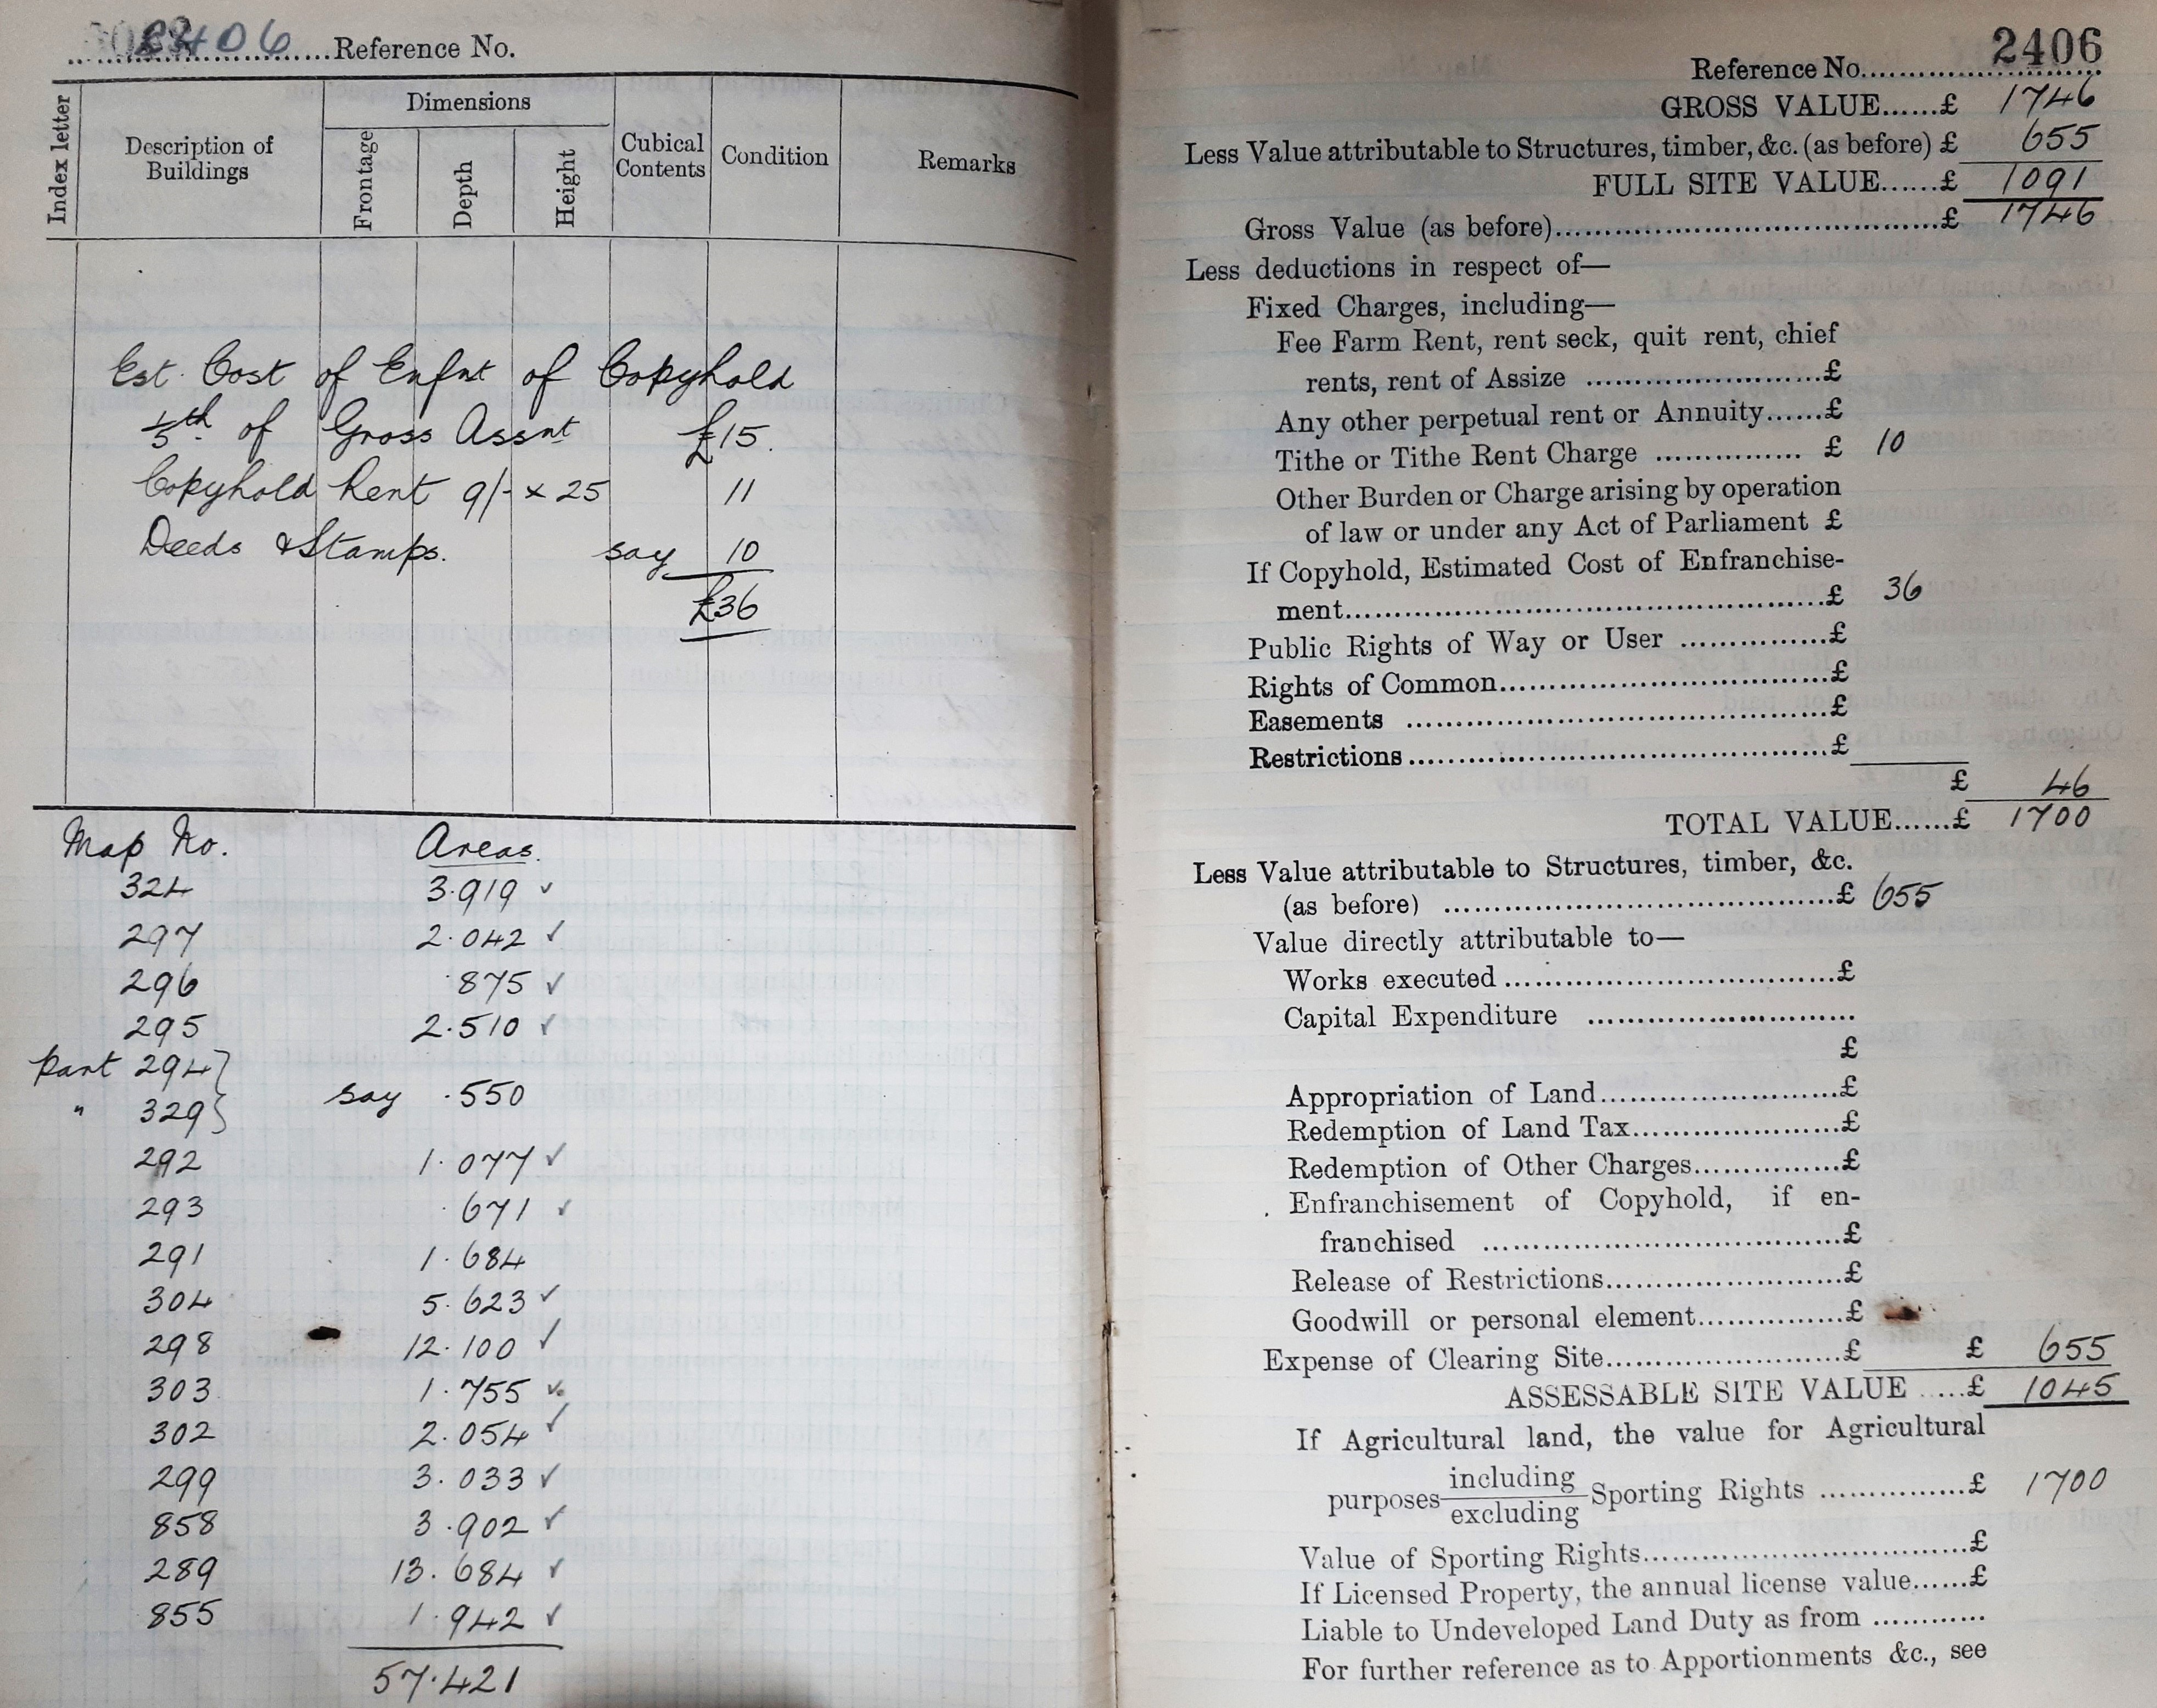 2406 Reference No.
Index letter
Description of Buildings
Dimensions
Frontage
Depth
Height
Cubical Contents
Condition
Remarks
Est. Cost of Enfnt of Copyhold
1/5th of Gross Assnt £15.
Copyhold Rent 9/- x 25 11
Deeds & Stamps. say 10
£36
Map No. Areas.
324 3.919 ✓
297 2.042 ✓
296 .875 ✓
295 2.510 ✓
part 294 }
" 329 } say .550
292 1.077 ✓
293 .671 ✓
291 1.684
304 5.623 ✓
298 12.100 ✓
303 1.755 ✓
302 2.054 ✓
299 3.033 ✓
858 3.902 ✓
289 13.684 ✓
855 1.942 ✓
57.421
Reference No. 2406
GROSS VALUE......£ 1746
Less Value attributable to Structures, timber, &c. (as before) £ 655
FULL SITE VALUE......£ 1091
Gross Value (as before)......£ 1746
Less deductions in respect of—
Fixed Charges, including—
Fee Farm Rent, rent seck, quit rent, chief
rents, rent of Assize ......£
Any other perpetual rent or Annuity......£
Tithe or Tithe Rent Charge ...... £ 10
Other Burden or Charge arising by operation
of law or under any Act of Parliament £
If Copyhold, Estimated Cost of Enfranchise-
ment......£ 36
Public Rights of Way or User ......£
Rights of Common......£
Easements ......£
Restrictions ......£
£ 46
TOTAL VALUE......£ 1700
Less Value attributable to Structures, timber, &c.
(as before) ......£ 655
Value directly attributable to—
Works executed ......£
Capital Expenditure ......
£
Appropriation of Land......£
Redemption of Land Tax......£
Redemption of Other Charges......£
Enfranchisement of Copyhold, if en-
franchised ......£
Release of Restrictions......£
Goodwill or personal element......£
Expense of Clearing Site......£ £ 655
ASSESSABLE SITE VALUE ......£ 1045
If Agricultural land, the value for Agricultural
purposes including/excluding Sporting Rights ......£ 1700
Value of Sporting Rights......£
If Licensed Property, the annual license value......£
Liable to Undeveloped Land Duty as from ......
For further reference as to Apportionments &c., see